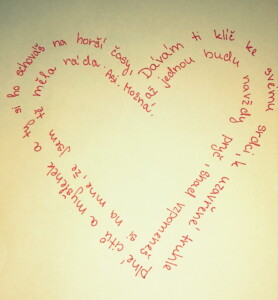 Dávám ti klíč ke svému srdci, k uzavřené truhle plné citů a myšlenek a tak si ho schováš na horší časy,
až jednou budu navždy pryč, snad vzpomeneš si na mne, že jsem tě měla ráda. Asi. Možná.